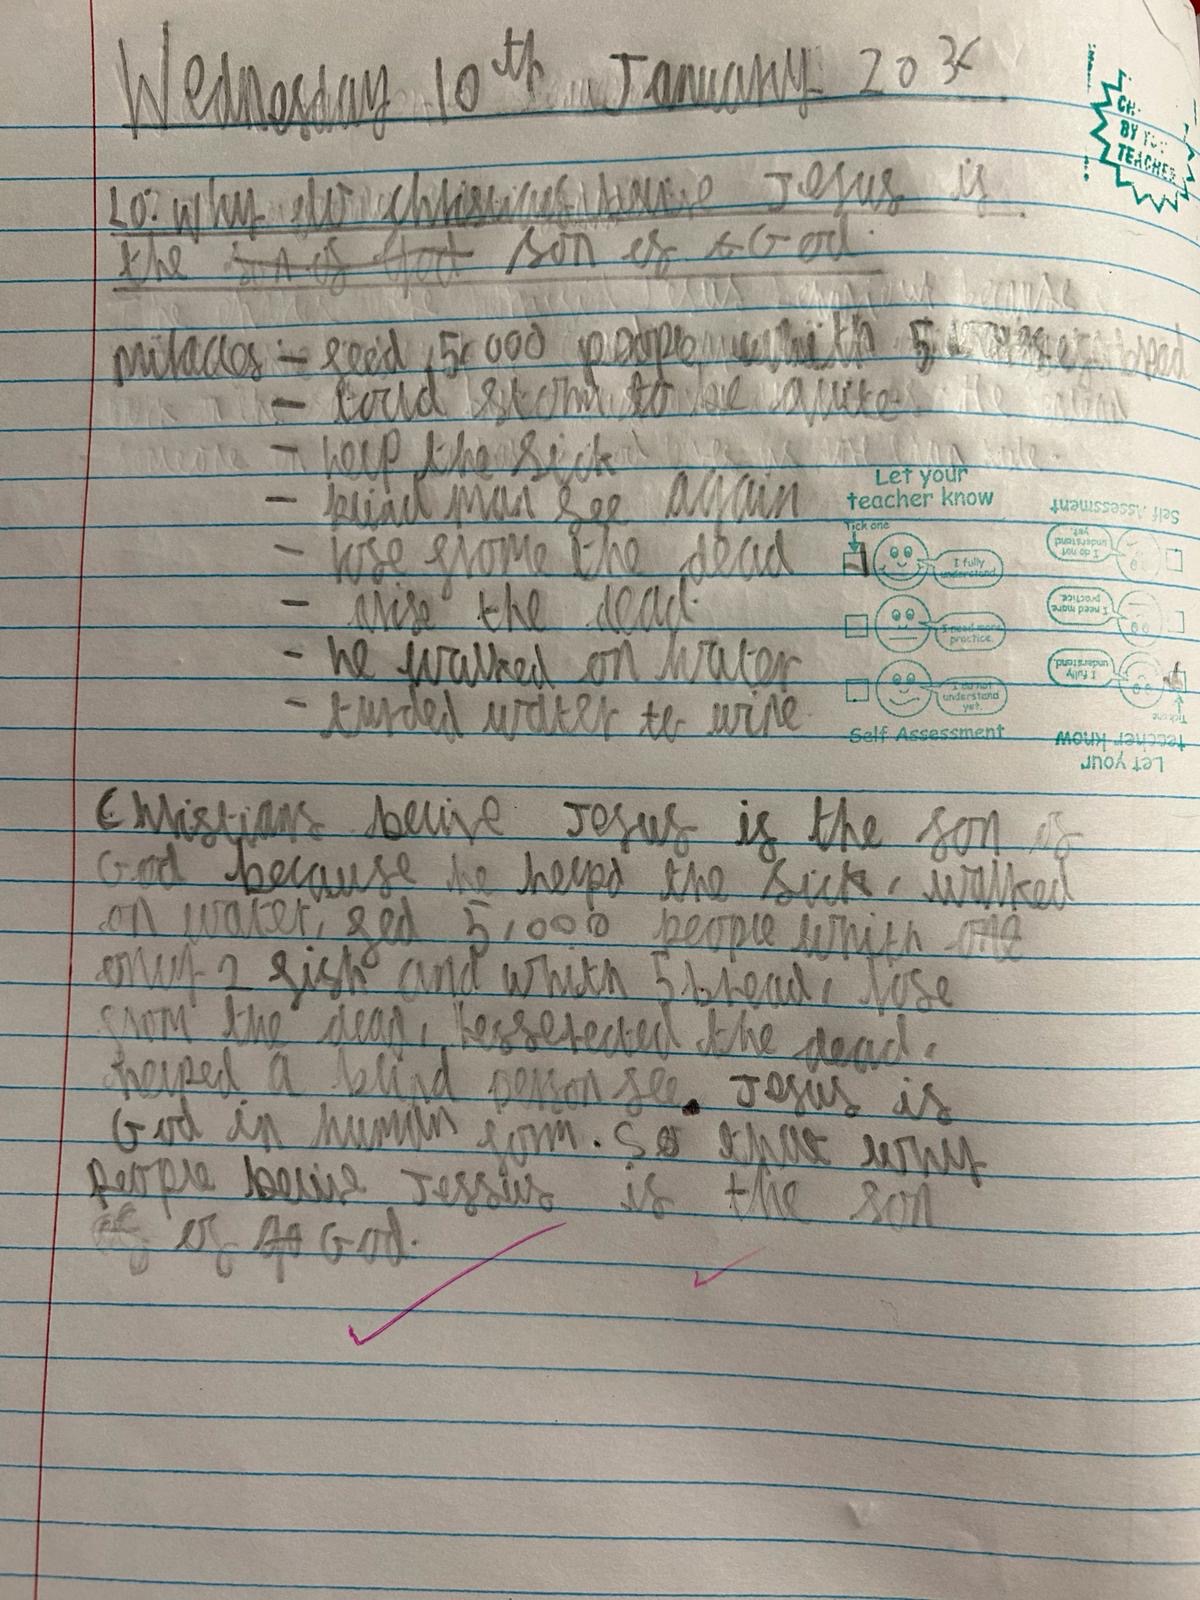 Wednesday 10th January 20
Lo: why do christians Jesus is
the son of God son of God.
miracles - feed 5,000 people whith 5
- tould storm to be quite
- help the sick
- blind man see again
- rose frome the dead
- arise the dead.
- he walked on water
- turded water to wine.
Christians belive Jesus is the son of
God because he helpd the sick, walked
on water, fed 5,000 people whith
only 2 fish and whith 5 bread, rose
from the dead, the dead,
helped a blind person see. Jesus is
God in human form. So that why
People belive Jessius is the son
of God.
CH
BY YO
TEACHER
Let your
teacher know
Tick one
I fully
understand.
I need more
practice.
I do not
understand
yet.
Self Assessment
Let your
teacher know
Tick one
I fully
understand.
I need more
practice.
I do not
understand
yet.
Self Assessment